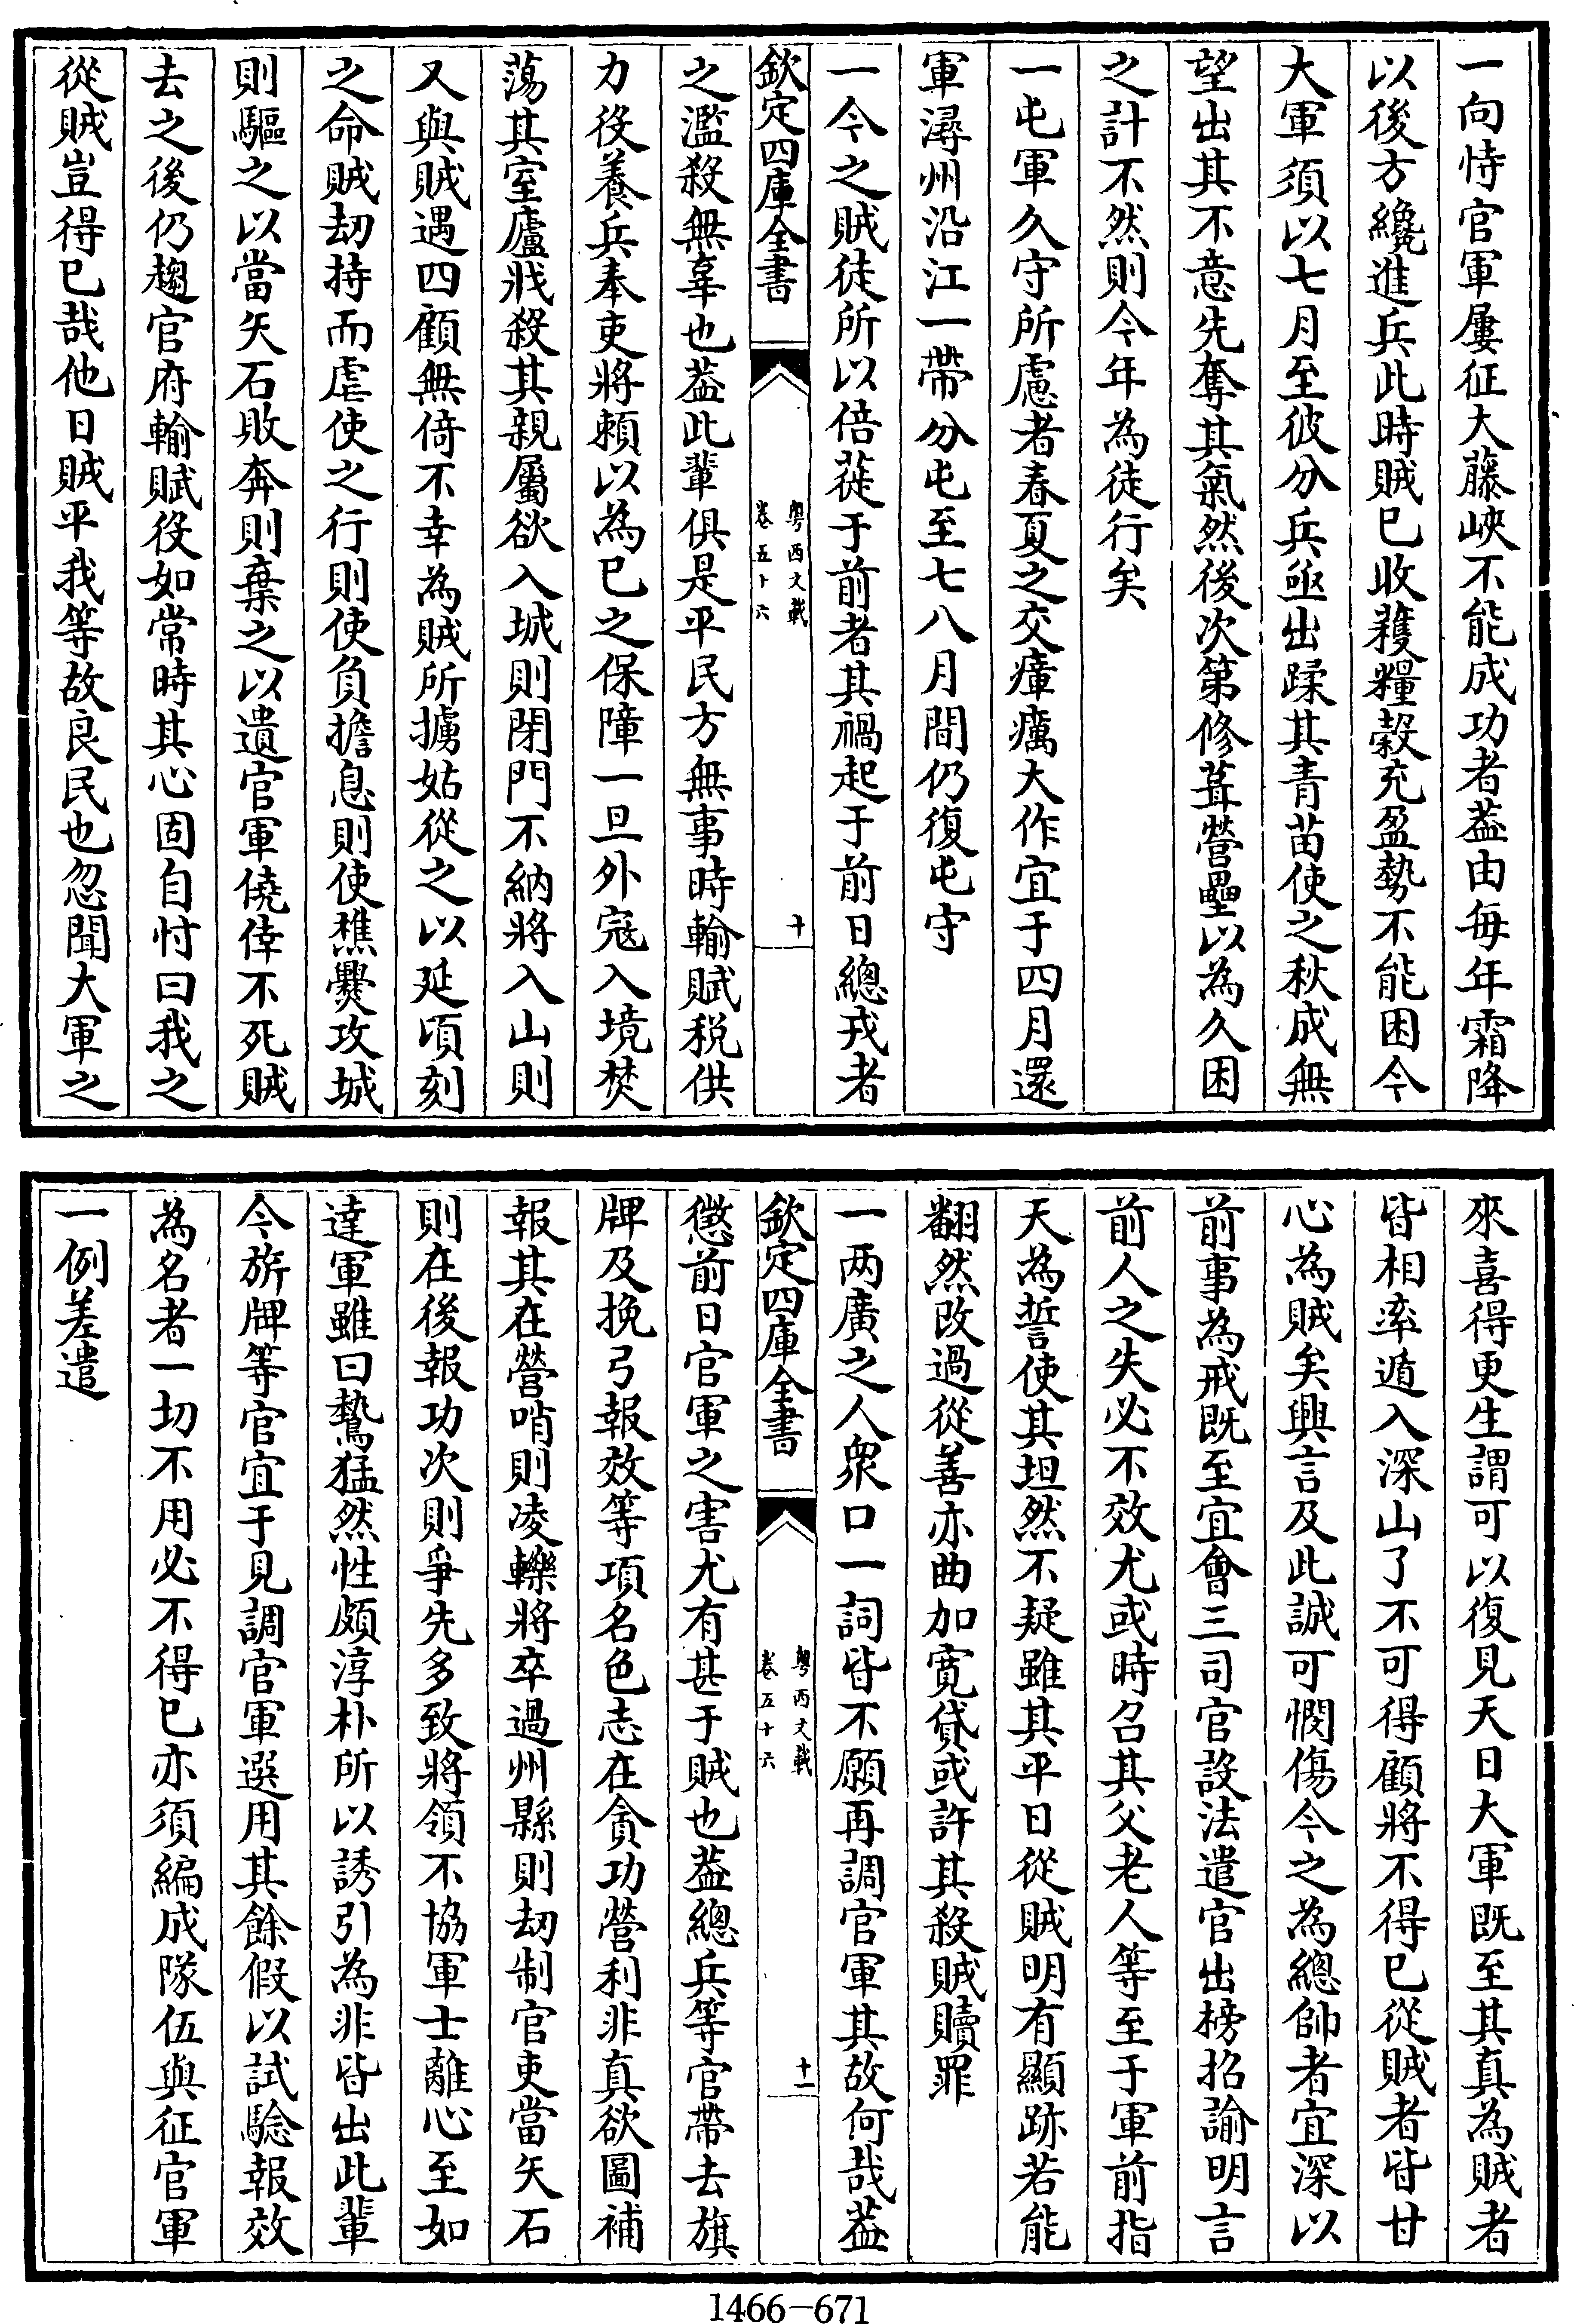 一向恃官軍屢征大藤峽不能成功者葢由每年霜降
以後方纔進兵此時賊已收穫糧穀充盈勢不能困今
大軍須以七月至彼分兵亟出蹂其青苗使之秋成無
望出其不意先奪其氣然後次第修葺營壘以為久困
之計不然則今年為徒行矣
一屯軍久守所慮者春夏之交瘴癘大作宜于四月還
軍潯州沿江一帶分屯至七八月間仍復屯守
一今之賊徒所以倍蓰于前者其禍起于前日總戎者
欽定四庫全書
粤西文載
卷五十六
十
之濫殺無辜也葢此輩俱是平民方無事時輸賦稅供
力役養兵奉吏將賴以為已之保障一旦外寇入境焚
蕩其室廬戕殺其親屬欲入城則閉門不納將入山則
又與賊遇四顧無倚不幸為賊所擄姑從之以延頃刻
之命賊刼持而虐使之行則使負擔息則使樵爨攻城
則驅之以當矢石敗奔則棄之以遺官軍僥倖不死賊
去之後仍趨官府輸賦役如常時其心固自忖曰我之
從賊豈得已哉他日賊平我等故良民也忽聞大軍之
來喜得更生謂可以復見天日大軍既至其真為賊者
皆相率遁入深山了不可得顧將不得已從賊者皆甘
心為賊矣興言及此誠可憫傷今之為總帥者宜深以
前事為戒既至宜會三司官設法遣官出榜招諭明言
前人之失必不效尤或時召其父老人等至于軍前指
天為誓使其坦然不疑雖其平日從賊明有顯跡若能
翻然改過從善亦曲加寬貸或許其殺賊贖罪
一两廣之人衆口一詞皆不願再調官軍其故何哉葢
欽定四庫全書
粤西文載
卷五十六
十一
懲前日官軍之害尤有甚于賊也葢總兵等官帶去旗
牌及挽弓報效等項名色志在貪功營利非真欲圖補
報其在營哨則凌轢將卒過州縣則刼制官吏當矢石
則在後報功次則爭先多致將領不協軍士離心至如
達軍雖曰鷙猛然性頗淳朴所以誘引為非皆出此輩
今旂牌等官宜于見調官軍選用其餘假以試驗報效
為名者一切不用必不得已亦須編成隊伍與征官軍
一例差遣
1466—671